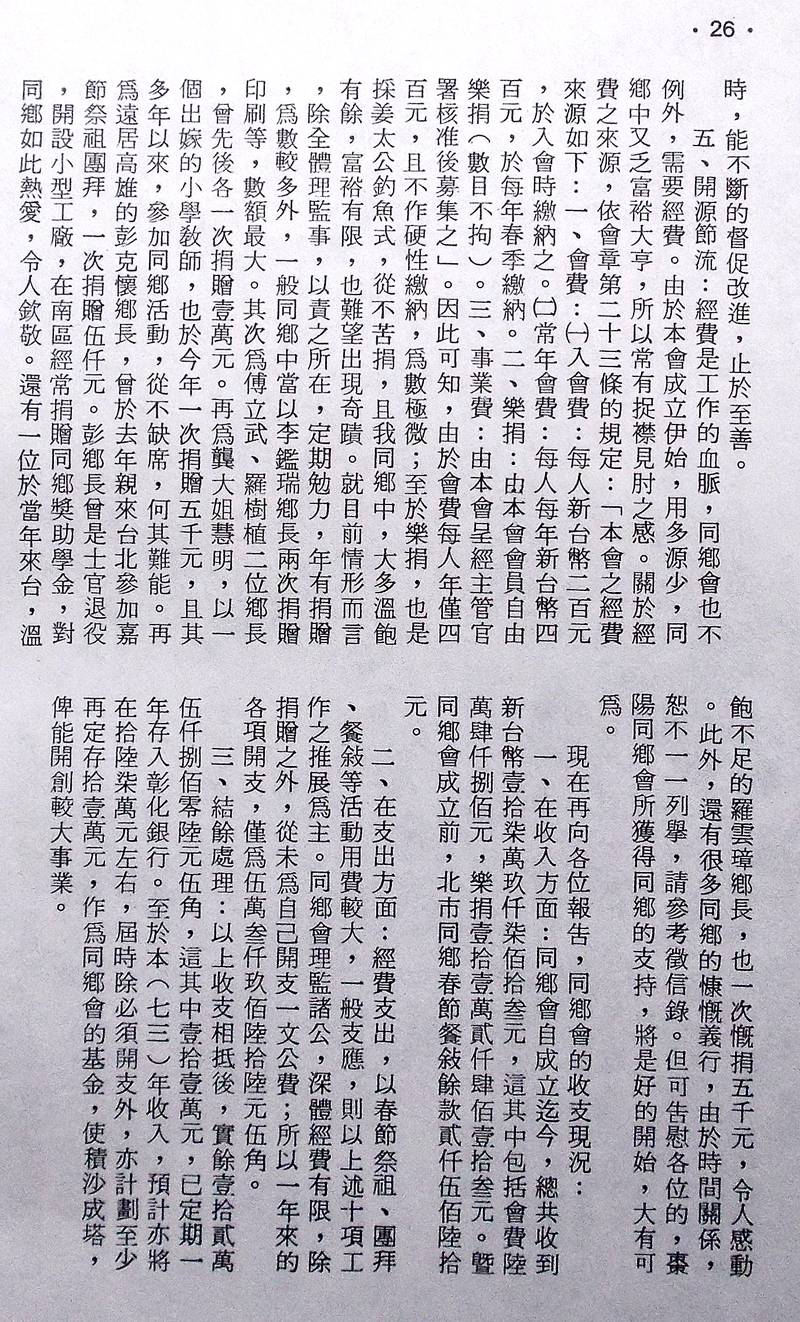 • 26 •
時，能不斷的督促改進，止於至善。
五、開源節流：經費是工作的血脈，同鄉會也不
例外，需要經費。由於本會成立伊始，用多源少，同
鄉中又乏富裕大亨，所以常有捉襟見肘之感。關於經
費之來源，依會章第二十三條的規定：「本會之經費
來源如下：一、會費：㈠入會費：每人新台幣二百元
，於入會時繳納之。㈡常年會費：每人每年新台幣四
百元，於每年春季繳納。二、樂捐：由本會會員自由
樂捐（數目不拘）。三、事業費：由本會呈經主管官
署核准後募集之」。因此可知，由於會費每人年僅四
百元，且不作硬性繳納，爲數極微；至於樂捐，也是
採姜太公釣魚式，從不苦捐，且我同鄉中，大多溫飽
有餘，富裕有限，也難望出現奇蹟。就目前情形而言
，除全體理監事，以責之所在，定期勉力，年有捐贈
，爲數較多外，一般同鄉中當以李鑑瑞鄉長兩次捐贈
印刷等，數額最大。其次爲傅立武、羅樹植二位鄉長
，曾先後各一次捐贈壹萬元。再爲龔大姐慧明，以一
個出嫁的小學敎師，也於今年一次捐贈五千元，且其
多年以來，參加同鄉活動，從不缺席，何其難能。再
爲遠居高雄的彭克懷鄉長，曾於去年親來台北參加嘉
節祭祖團拜，一次捐贈伍仟元。彭鄉長曾是士官退役
，開設小型工廠，在南區經常捐贈同鄉獎助學金，對
同鄉如此熱愛，令人欽敬。還有一位於當年來台，溫
飽不足的羅雲璋鄉長，也一次慨捐五千元，令人感動
。此外，還有很多同鄉的慷慨義行，由於時間關係，
恕不一一列舉，請參考徵信錄。但可告慰各位的，棗
陽同鄉會所獲得同鄉的支持，將是好的開始，大有可
爲。
現在再向各位報告，同鄉會的收支現況：
一、在收入方面：同鄉會自成立迄今，總共收到
新台幣壹拾柒萬玖仟柒佰拾叁元，這其中包括會費陸
萬肆仟捌佰元，樂捐壹拾壹萬貳仟肆佰壹拾叁元。暨
同鄉會成立前，北市同鄉春節餐敍餘款貳仟伍佰陸拾
元。
二、在支出方面：經費支出，以春節祭祖、團拜
、餐敍等活動用費較大，一般支應，則以上述十項工
作之推展爲主。同鄉會理監諸公，深體經費有限，除
捐贈之外，從未爲自己開支一文公費；所以一年來的
各項開支，僅爲伍萬叁仟玖佰陸拾陸元伍角。
三、結餘處理：以上收支相抵後，實餘壹拾貳萬
伍仟捌佰零陸元伍角，這其中壹拾壹萬元，已定期一
年存入彰化銀行。至於本（七三）年收入，預計亦將
在拾陸柒萬元左右，屆時除必須開支外，亦計劃至少
再定存拾壹萬元，作爲同鄉會的基金，使積沙成塔，
俾能開創較大事業。